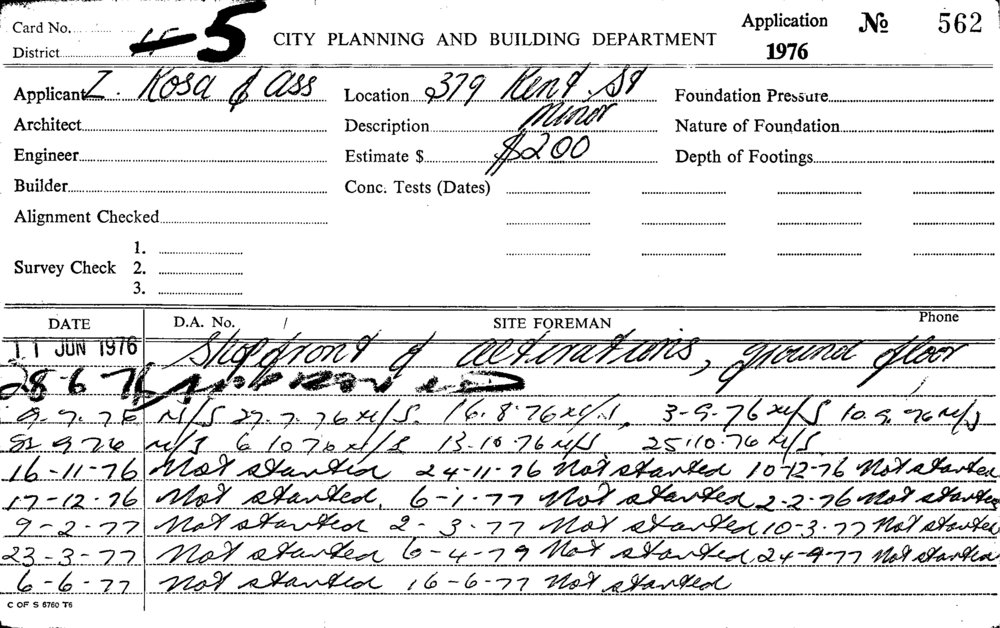 Card No.
District 5
CITY PLANNING AND BUILDING DEPARTMENT
Application № 562
1976
Applicant Z. Kosa & Ass Location 379 Kent St Foundation Pressure
Architect Description Minor Nature of Foundation
Engineer Estimate $ $200 Depth of Footings
Builder Conc. Tests (Dates)
Alignment Checked
1.
Survey Check 2.
3.
DATE D.A. No. / SITE FOREMAN Phone
11 JUN 1976 Shopfront & alterations, ground floor
28-6-76
9-7-76 N/S 27.7.76 N/S. 16.8.76 N/S, 3-9-76 N/S 10.9.76 N/S
9 76 N/S 6 10 76 N/S 13-10-76 N/S 25.10.76 N/S
16-11-76 Not started 24-11-76 Not started 10-12-76 Not started
17-12-76 Not started. 6-1-77 Not started 2-2-76 Not started
9-2-77 Not started 2-3-77 Not started 10-3-77 Not started
23-3-77 Not started 6-4-79 Not started 24-9-77 Not started
6-6-77 Not started 16-6-77 Not started
C OF S 5760 T6